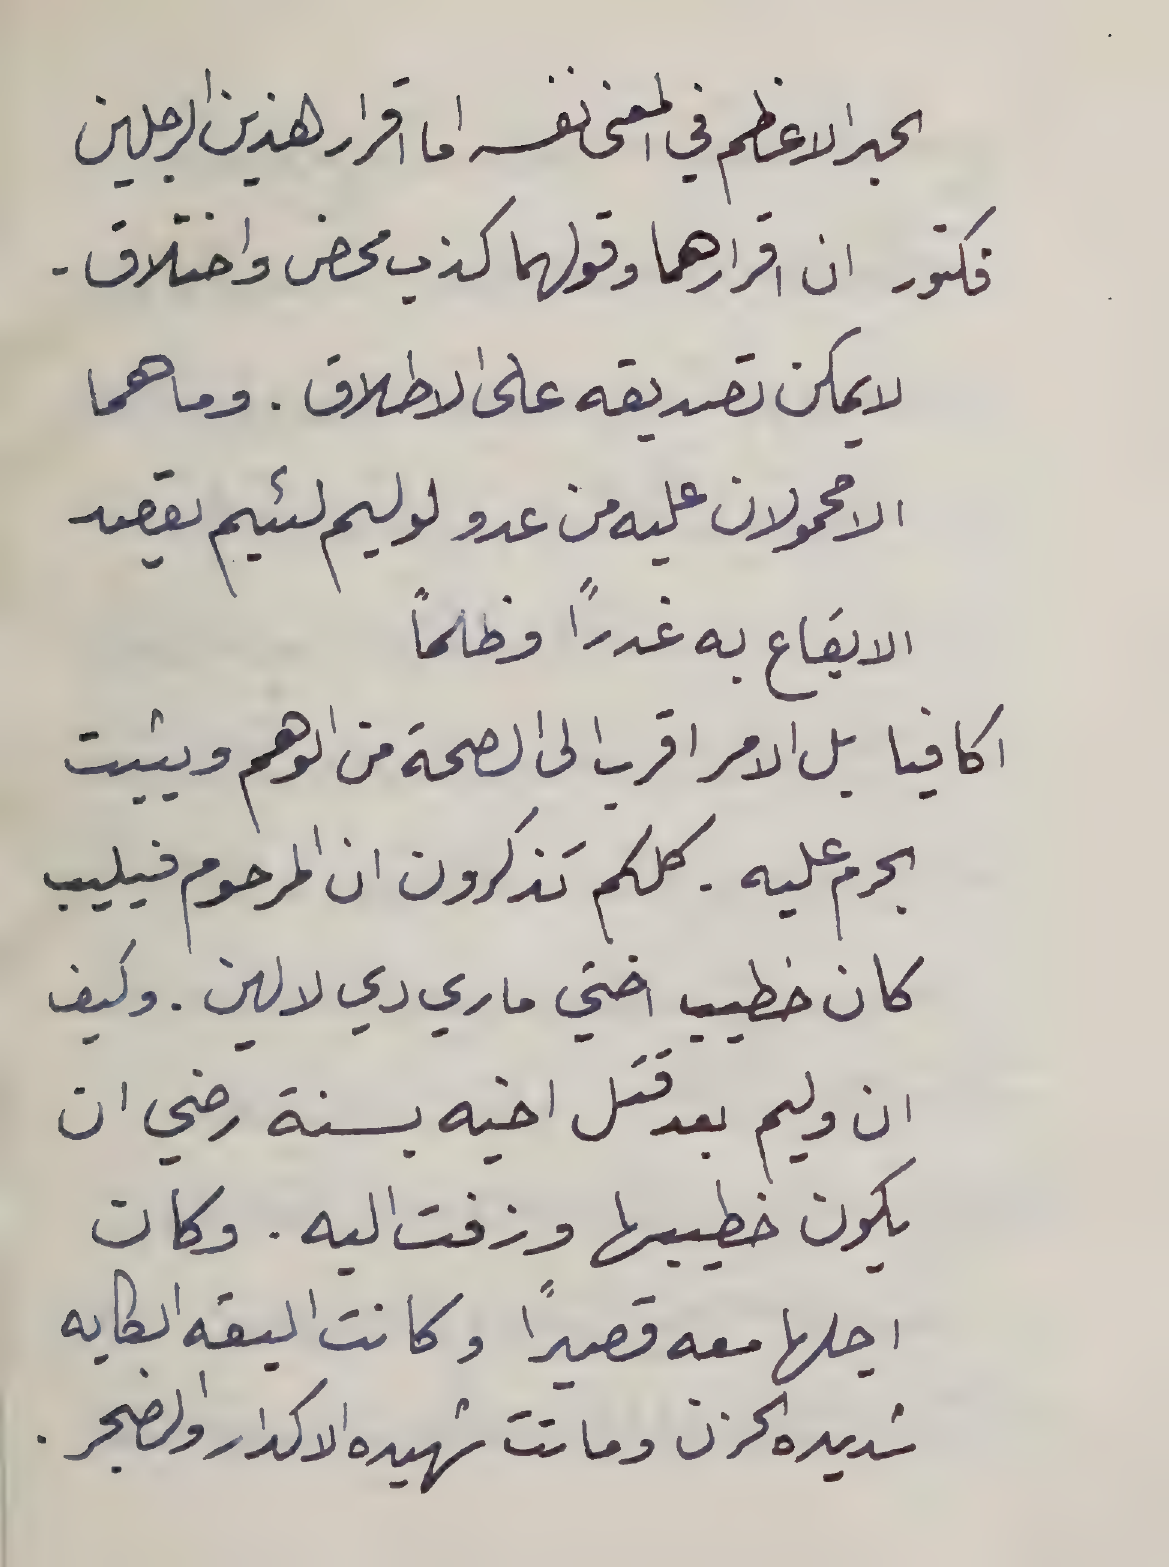 الحبر الاعظم في المعنى نفسه اما اقرار هذين الرجلين
فكتور ان اقرارهما وقولهما كذب محض واختلاق -
لا يمكن تصديقه على الاطلاق . وما هما
الا محمولان عليه من عدو لوليم لئيم يقصد
الايقاع به غدراً وظلماً
اكافيا بل الامر اقرب الى الصحة من الوهم ويثبت
الجرم عليه . كلكم تذكرون ان المرحوم فيليب
كان خطيب اختي ماري دي لالين . وكيف
ان وليم بعد قتل اخيه بسنة رضي ان
يكون خطيبها وزفت اليه . وكان
اجلها معه قصيراً وكانت اليفه الكآبه
شديده الحزن وماتت شهيده الاكدار والضجر .